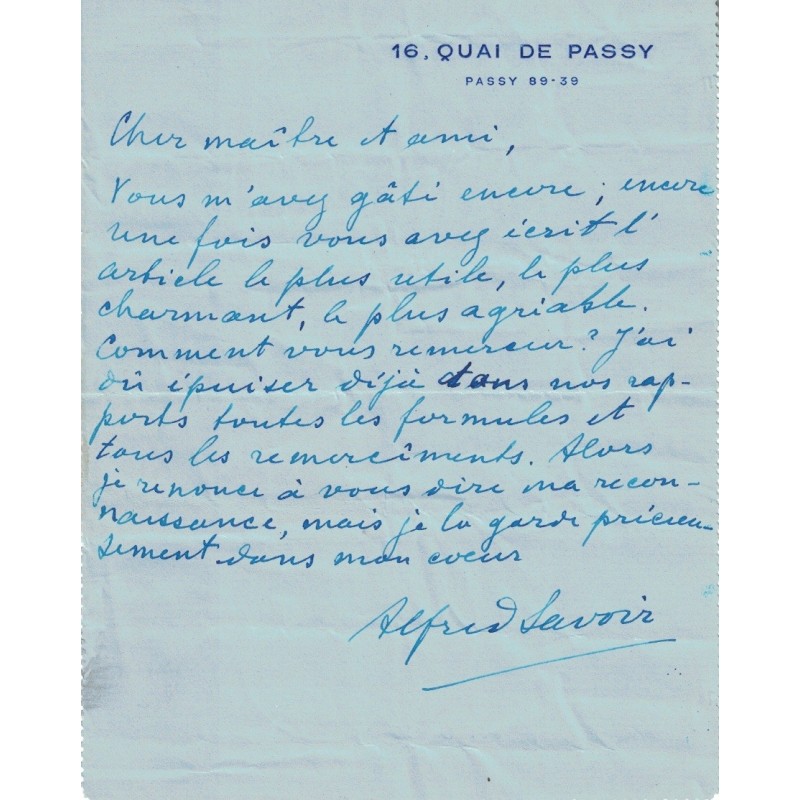 16, QUAI DE PASSY
PASSY 89-39
Cher maître et ami,
Vous m'avez gâté encore ; encore
une fois vous avez écrit l'
article le plus utile, le plus
charmant, le plus agréable.
Comment vous remercier ? J'ai
dû épuiser déjà dans nos rap-
ports toutes les formules et
tous les remercîments. Alors
je renonce à vous dire ma recon-
naissance, mais je la garde précieu-
sement dans mon coeur
Alfred Savoir